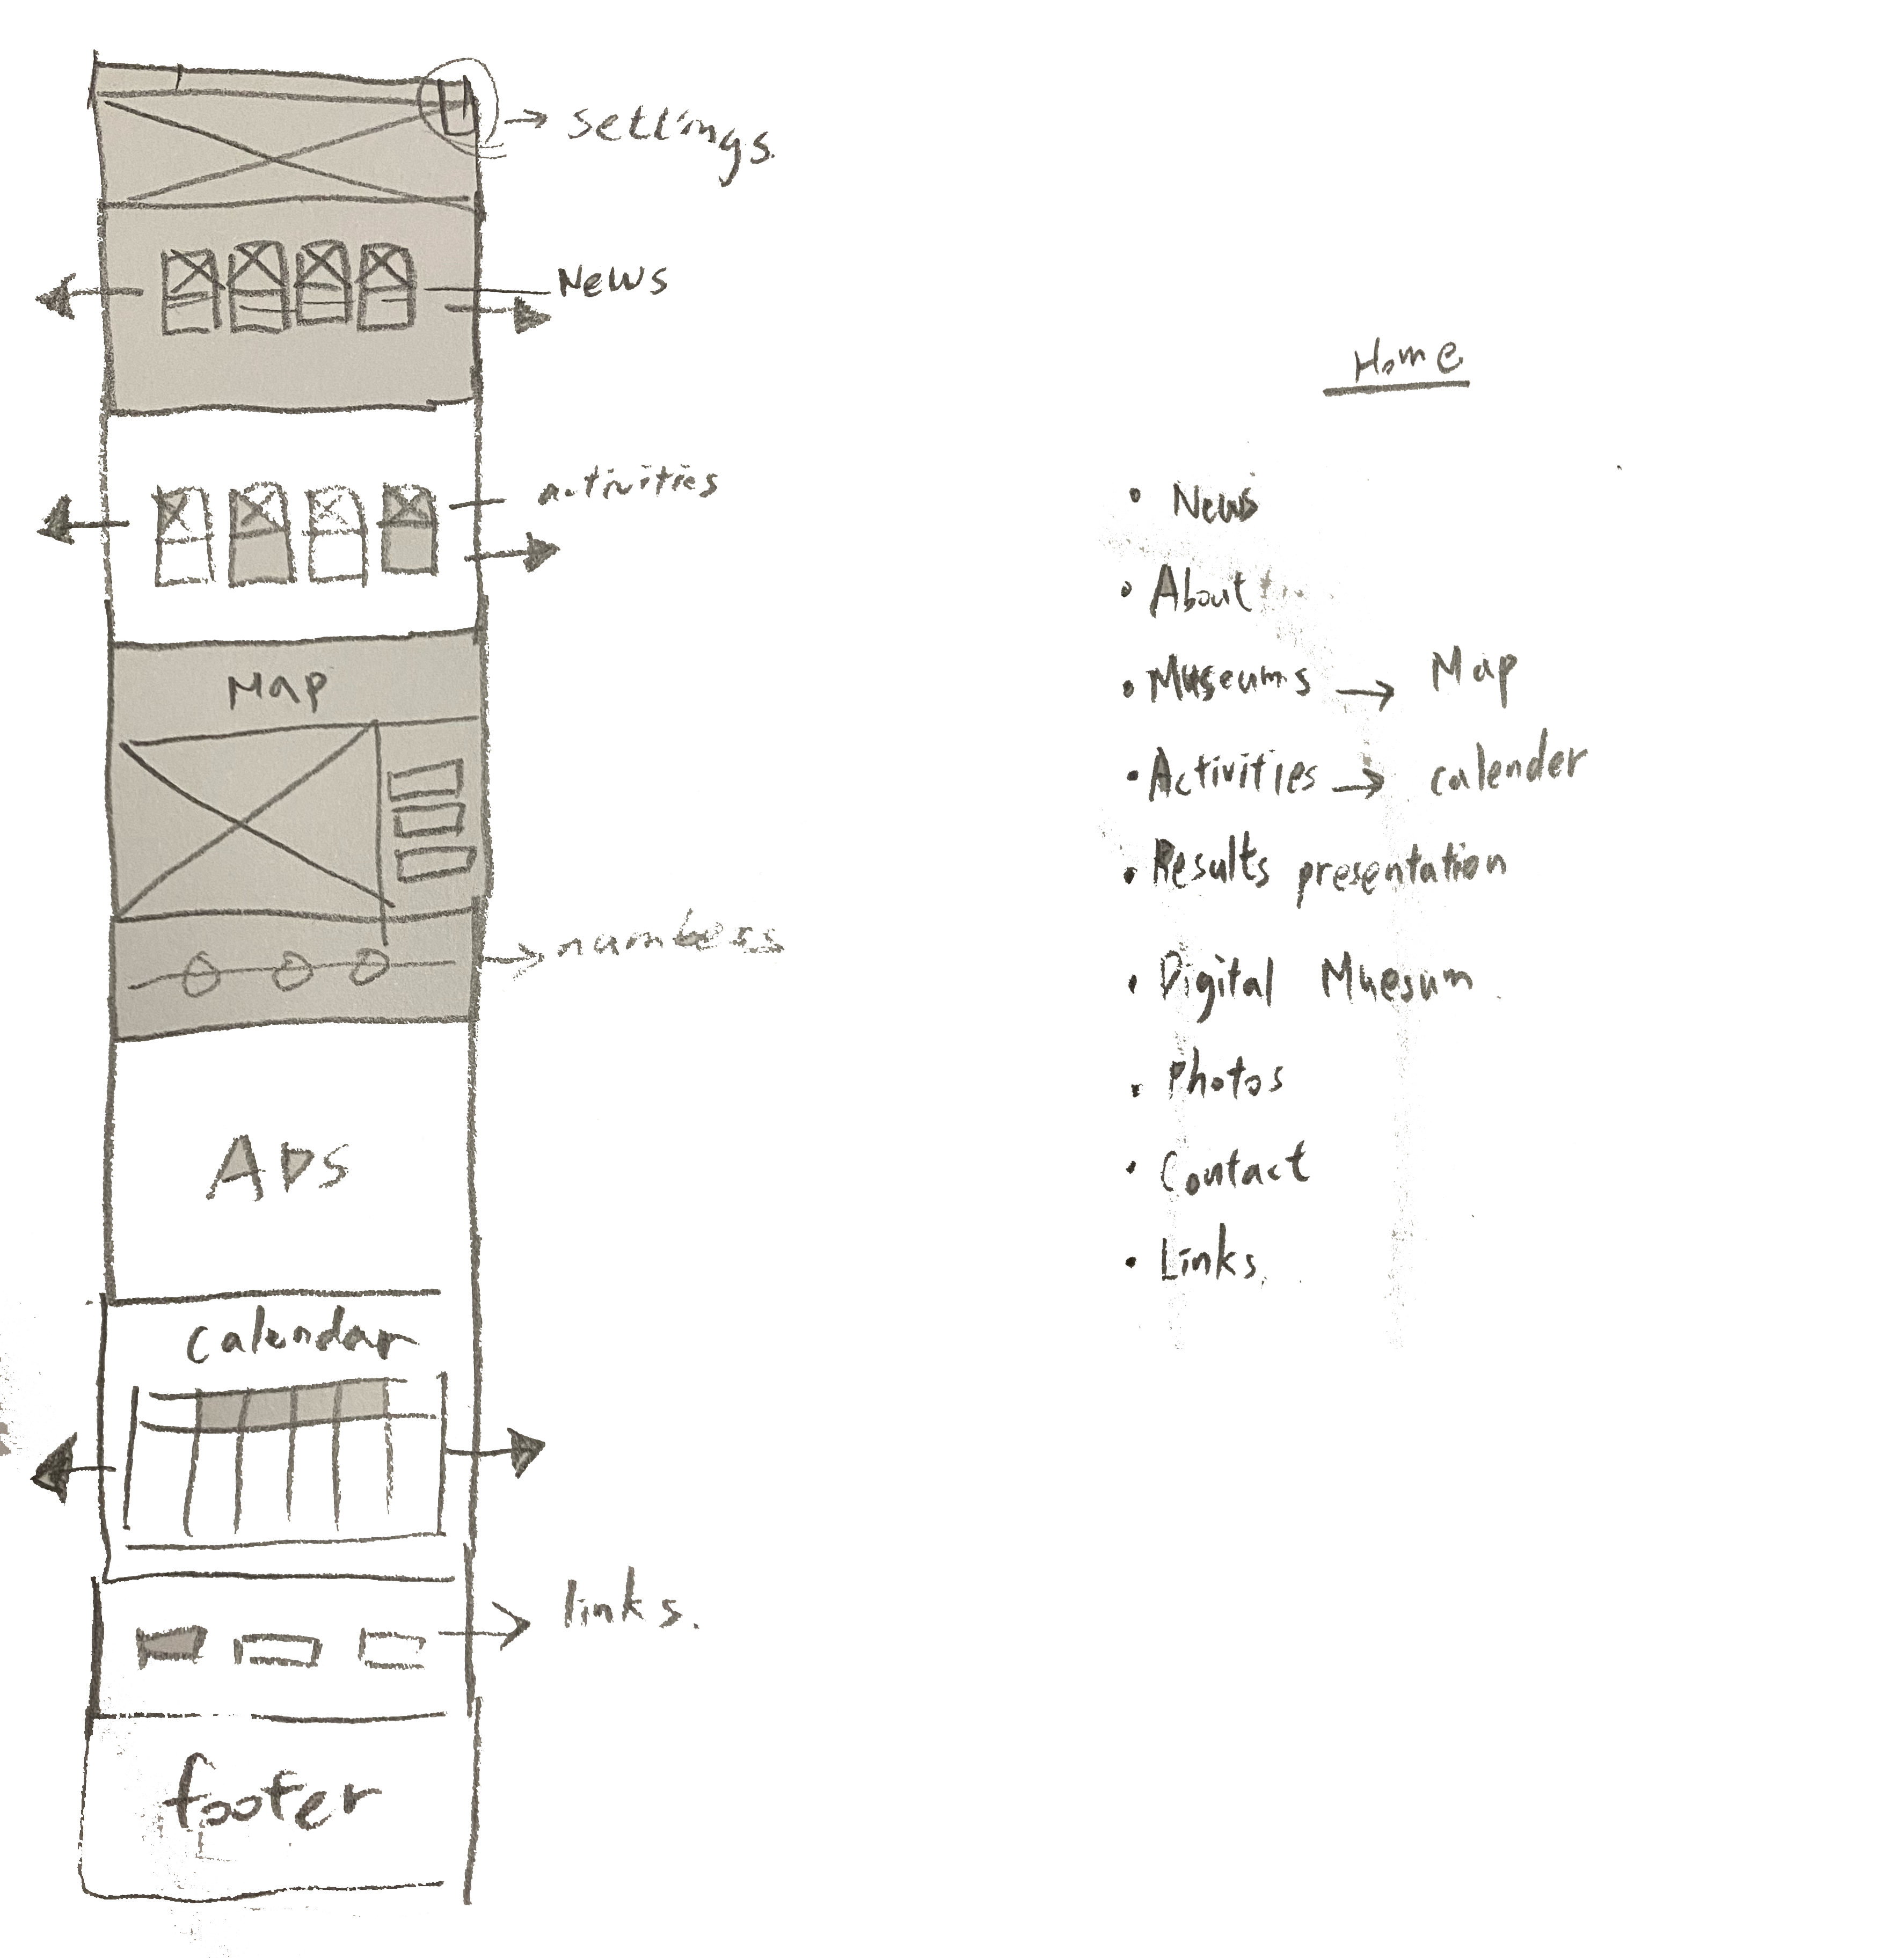 settings.
News
activities
Map
numbers
ADS
calendar
links.
footer
Home
• News
• About
• Museums → Map
• Activities → calender
• Results presentation
• Digital Muesum
• Photos
• Contact
• Links.